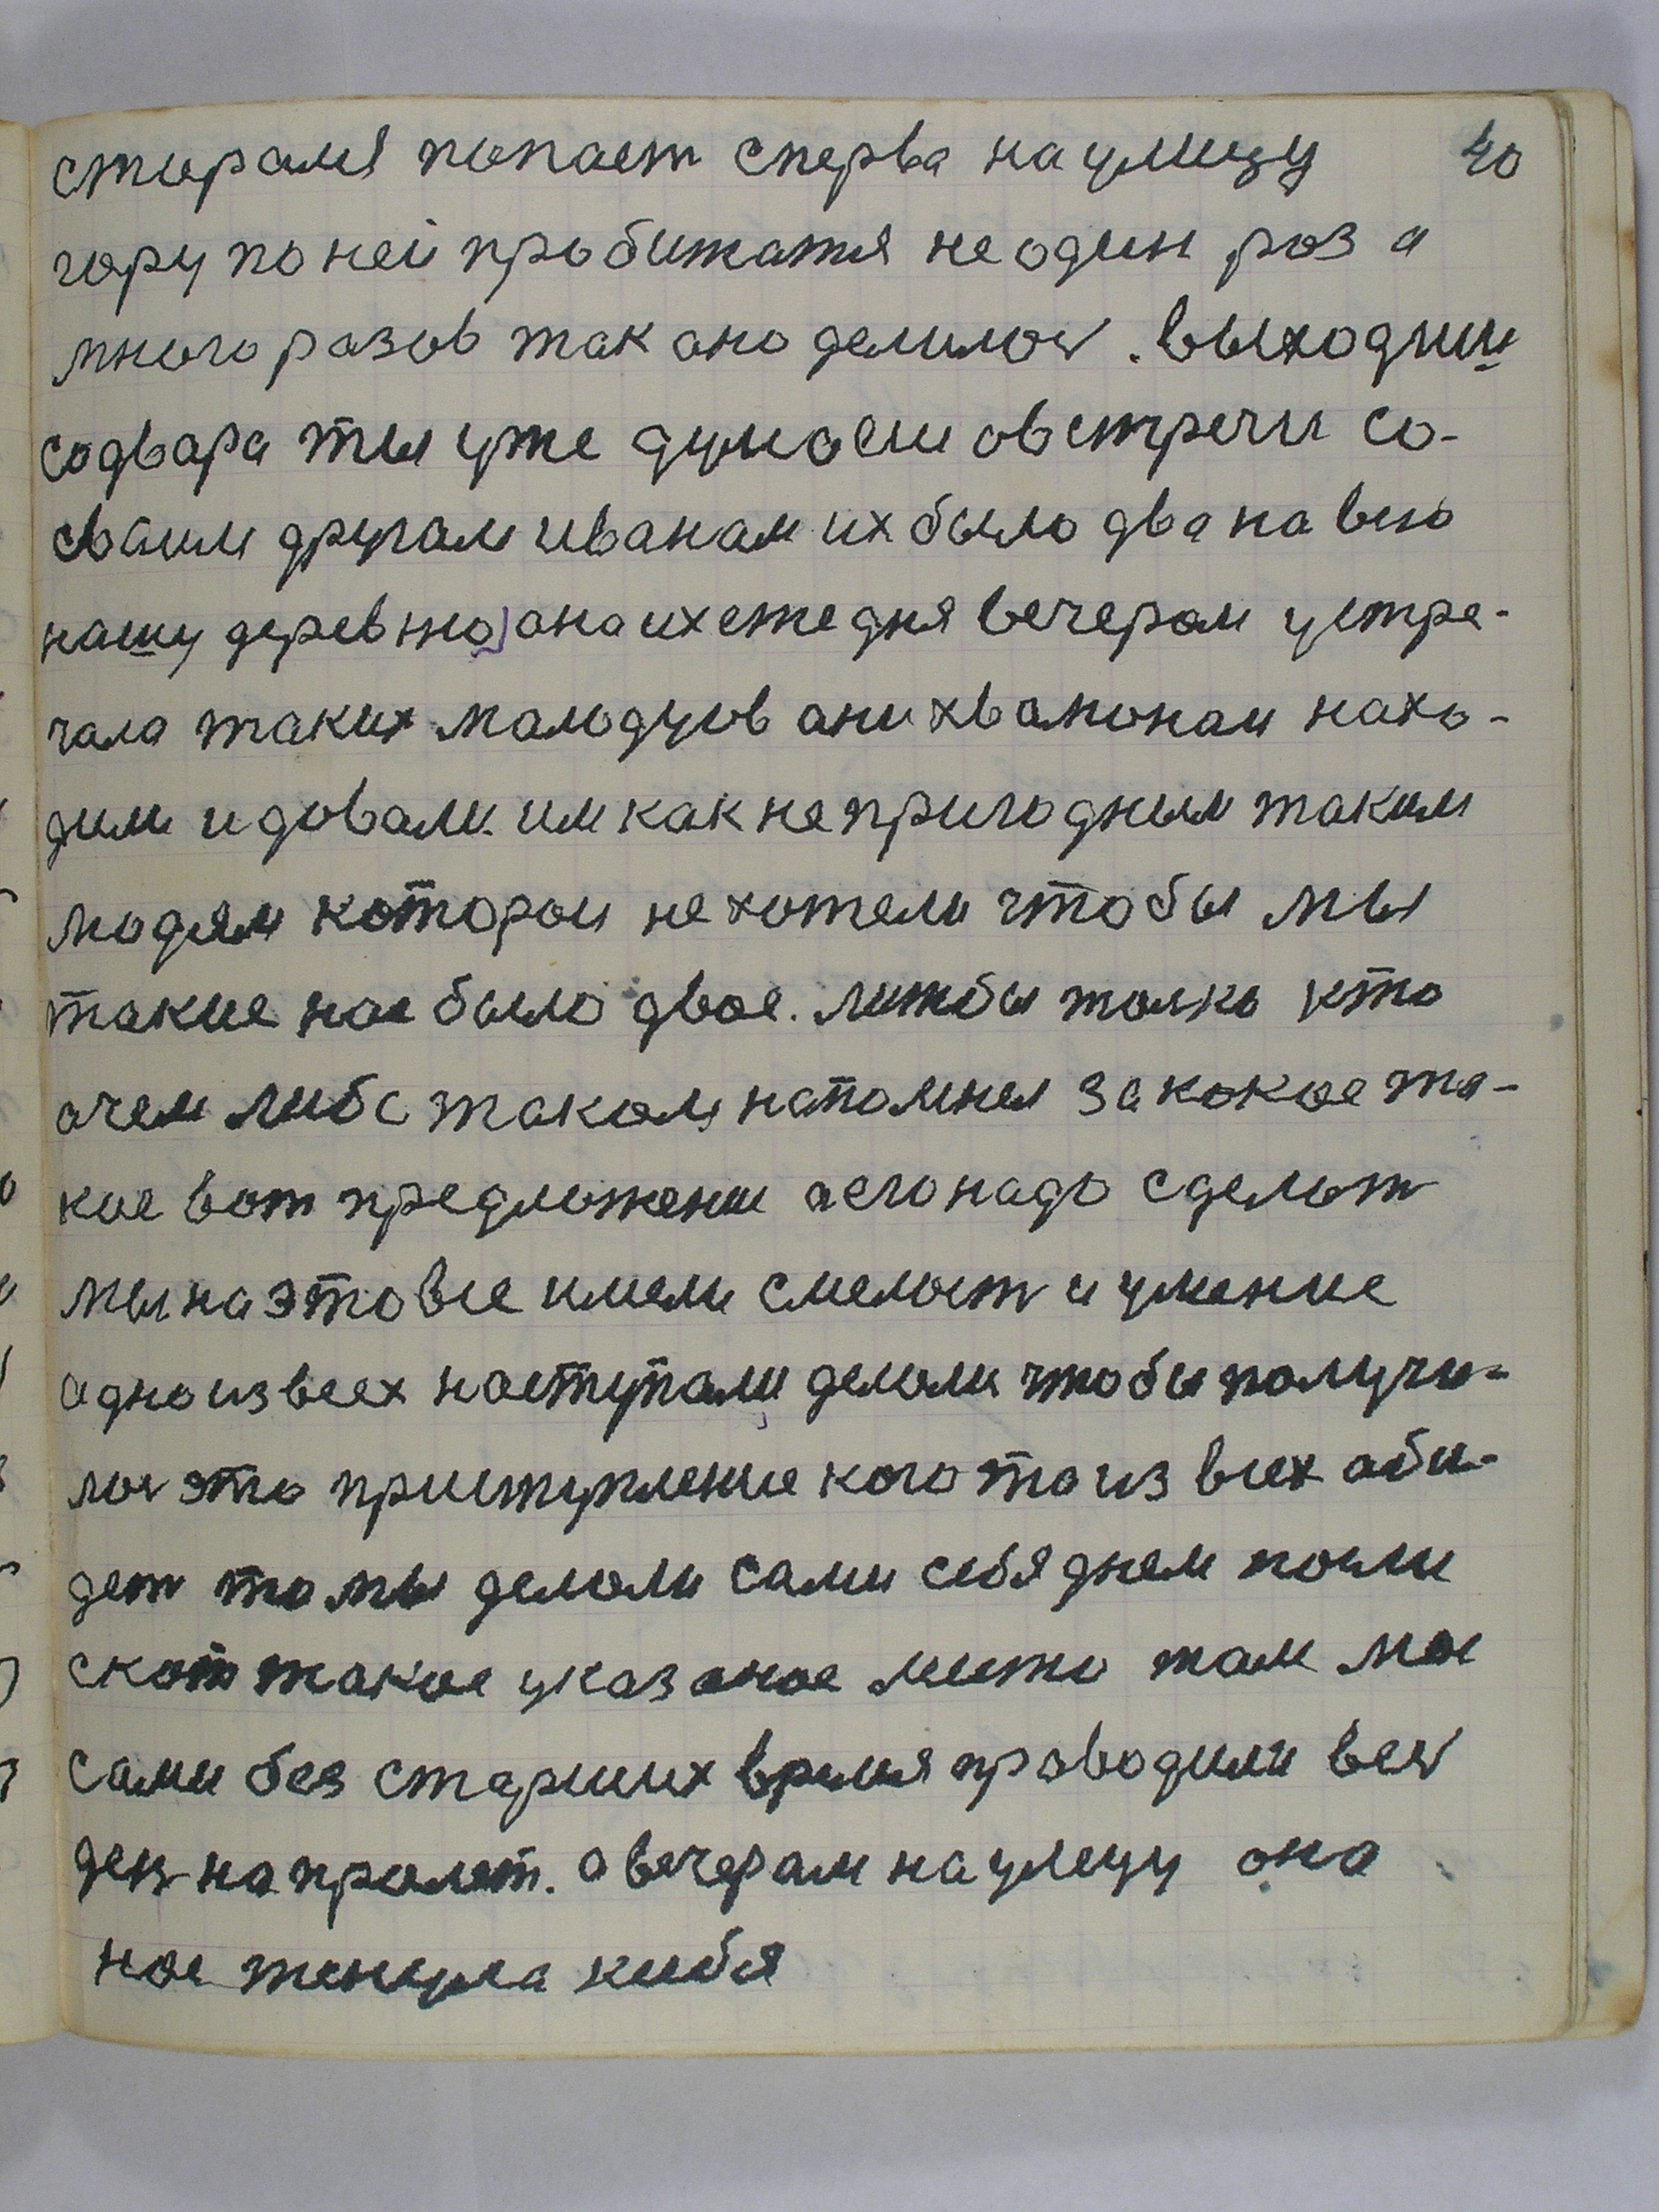 40
стирался попает сперва наулицу
гору по ней пробижатся неодин роз а
много разов так ано делилось. выходиш
содвара ты уже думаеш овстречи со-
сваим другам иванам их было два на всю
нашу деревню, ана их ежедня вечерам устре-
чала таких малодцов ани хвамонам нахо-
дили и довали им как непригодным таким
людям которои нехотели чтобы мы
такие нас было двое. лижбы толко кто
очем либо таком напомнил за какое та-
кое вот предложение чегонадо сделат
мы наэто все имели смелост и умение
адно извсех наступали делали чтобы получи-
лос это приступление кого то из всех оби-
дет то мы делали сами себя днем посли
скот такое указаное место там мы
сами без старших время праводили вес
ден напролет. а вечерам наулецу она
нас тенула ксибя